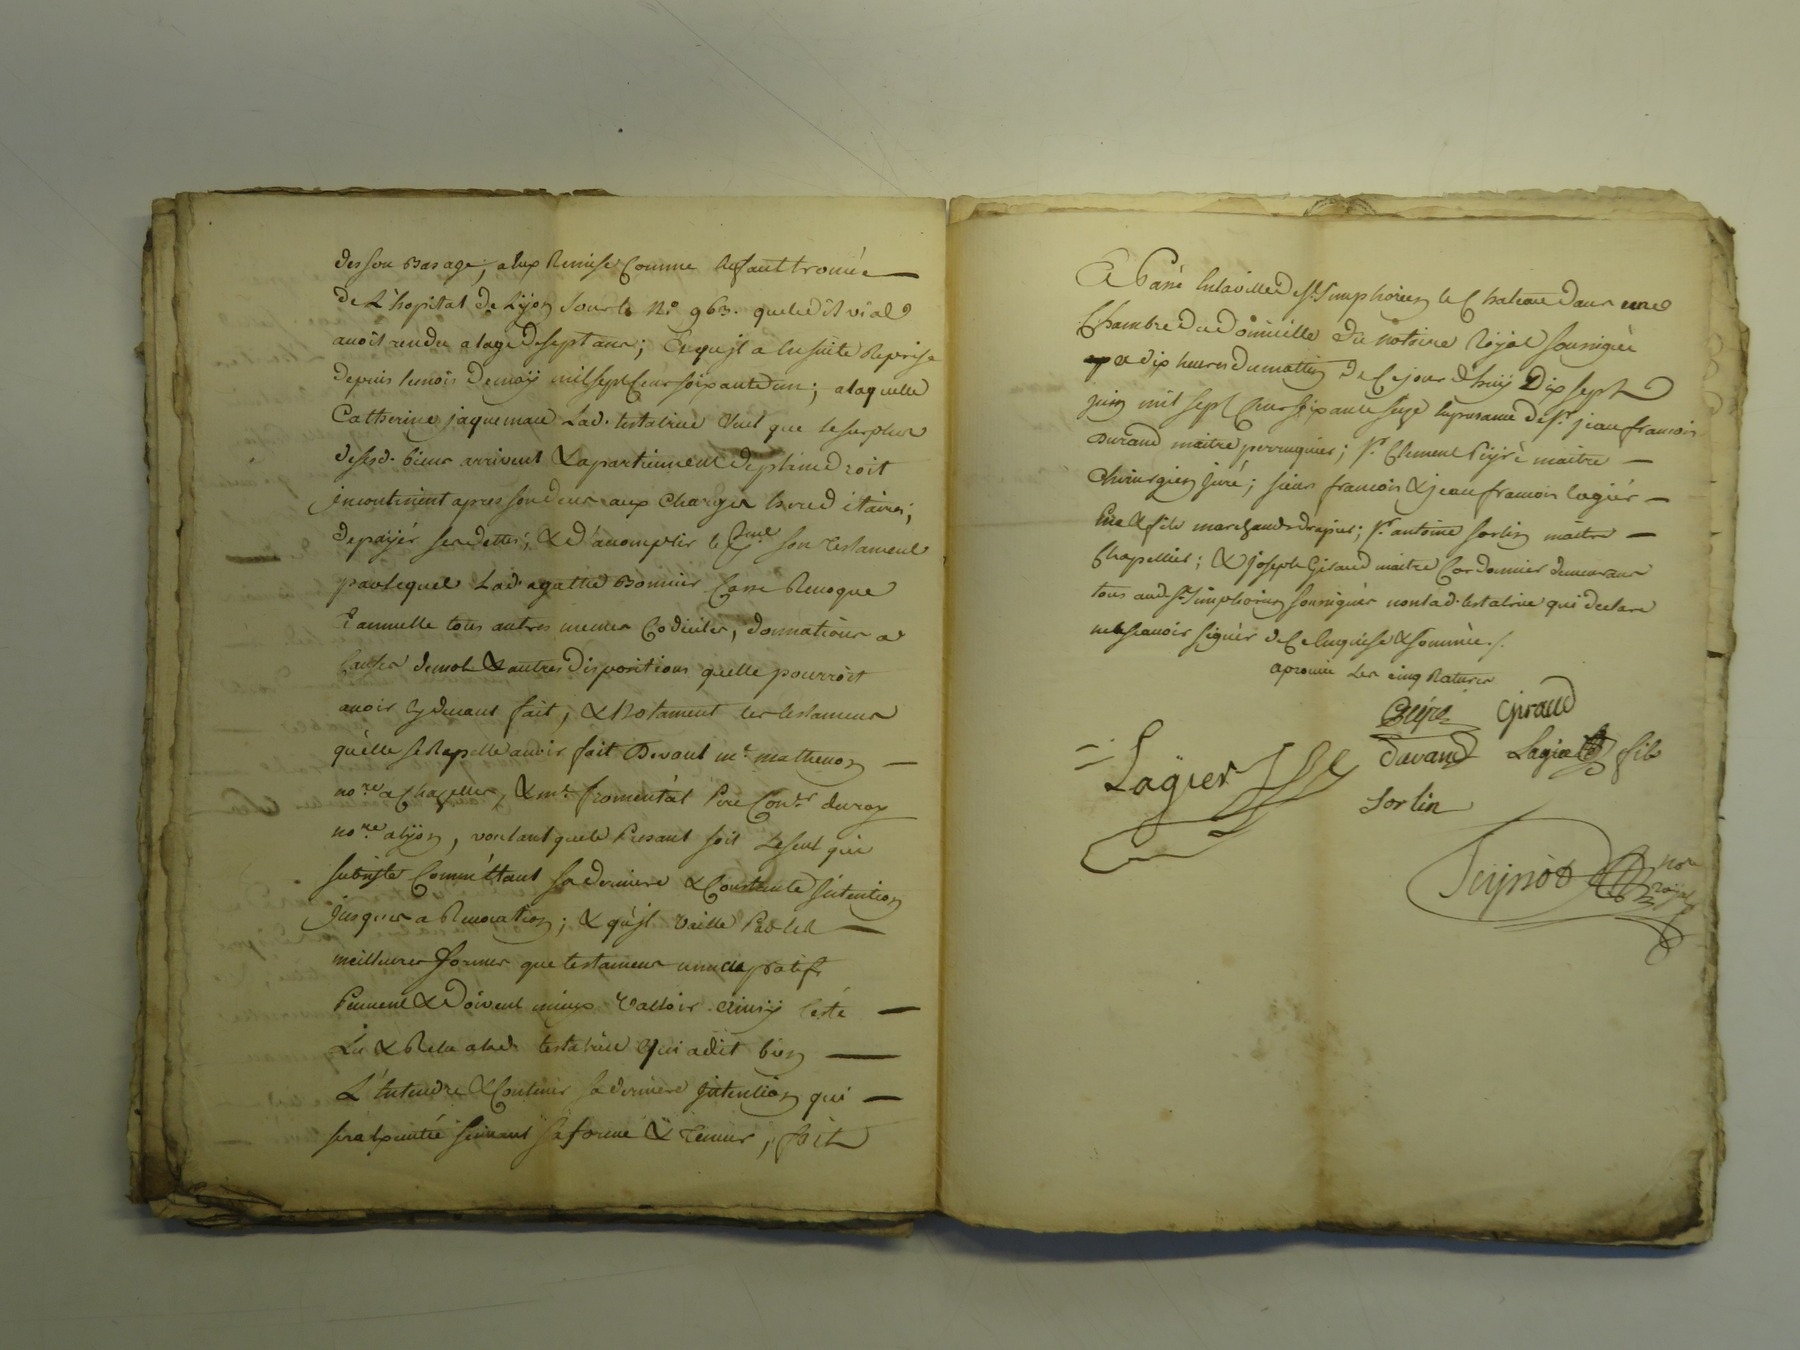 des son Bas age, a luy Remise Comme Enfant trouvée
de L'hopital de Lyon sous le N.o 963. que led. Vial
avoit rendue a lage de sept ans; Et qu'jl a Ensuite Reprise
depuis le mois de may mil sept Cens soixante un; a laquelle
Catherine jaquemau Lad. testatrice Veut que le surplus
de sesd. biens arrivent & apartiennent de plein droit
jncontinent apres son deces aux Charges hereditaires;
de payér ses dettes, & d'accomplir le son testament
par lequel Lad. agathe Bonnier Casse Revoque
Et annulle tous autres memes Codiciles, donnations a
Causes de mort & autres dispositions qu'elle pourroit
avoir Cydevant fait, & Notament les testamens
qu'elle se Rapelle avoir fait Devant m.e mathevon
no.re a Chazelles, & m.e fromentàl Pere Con.er du roy
no.re a lyon, voulant que le Présant soit Le seul qui
subsiste Comméttant sa derniere & Constante jntention
jusques a Revocation; & qu'jl Vaille Par les
meilleures formes que testamens nuncupatifs
Peuvent & Doivent mieux Valloir. Ainsy l'éte
Lu & Relu a lad. testatrice Qui a dit bien
L'Entendre & Contenir sa derniere jntention qui
sera Executée suivant sa forme & Teneur, fait
& Passé En la ville de S.t Simphorien le Chateau dans une
Chambre du Domicille du notaire Royal soussigné
a dix heures du matin de Ce jour d'huy Dix sept
juin mil sept Cens soixante seize En presance de S.r jean francois
Durand maitre perruquier; S.r Clement Peyré maitre
Chirurgien juré; sieurs francois & jean francois Lagiér
Pere & fils marchands drapiers; S.r antoine sorlin maitre
Chapellier; & joseph Giraud maitre Cordonnier demeurans
tous aud. S.t Simphorien soussignés non lad. testatrice qui declare
ne scavoir signér de Ce Enquise & sommée./.
aprouvé Les cinq Ratures
Peyre Giraud
Lagier Durand Lagier fils
Sorlin
no.re
royal